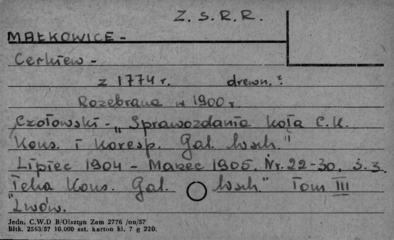 Z.S.R.R.
MAŁKOWICE -
Cerkiew -
z 1774 r. drewn.?
Rozebrana w 1900 r.
Czołowski - "Sprawozdania Koła C.K.
Kons. i Koresp. Gal. Wsch."
Lipiec 1904 - Marzec 1905. Nr. 22-30. s. 3.
Teka Kons. Gal. Wsch" Tom III
"Lwów.
Jedn. C.W.D B/Olsztyn Zam 2776 /on/57
Błtk. 2563/57 10.000 szt. karton kl. 7 g 220.